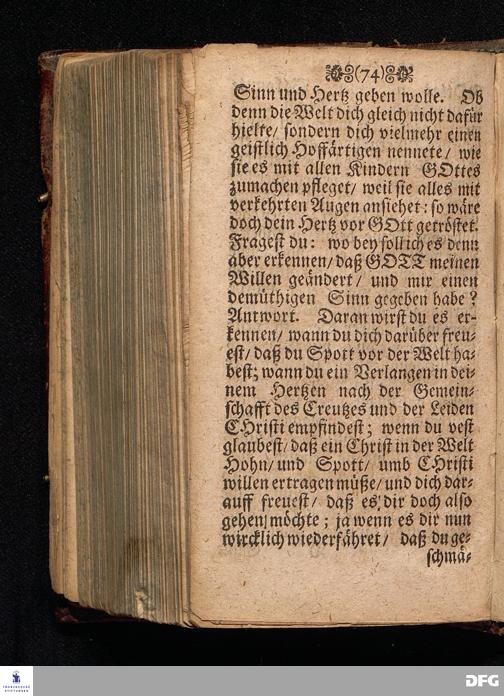 (74)
Sinn und Hertz geben wolle. Ob
denn die Welt dich gleich nicht dafür
hielte/ sondern dich vielmehr einen
geistlich Hoffärtigen nennete/ wie
sie es mit allen Kindern GOttes
zumachen pfleget/ weil sie alles mit
verkehrten Augen ansiehet: so wäre
doch dein Hertz vor GOtt getröstet.
Fragest du: wo bey soll ich es denn
aber erkennen/ daß GOTT meinen
Willen geändert/ und mir einen
demüthigen Sinn gegeben habe?
Antwort. Daran wirst du es er-
kennen/ wann du dich darüber freu-
est/ daß du Spott vor der Welt ha-
best; wann du ein Verlangen in dei-
nem Hertzen nach der Gemein-
schafft des Creutzes und der Leiden
CHristi empfindest; wenn du vest
glaubest/ daß ein Christ in der Welt
Hohn/ und Spott/ umb CHristi
willen ertragen müße/ und dich dar-
auff freuest/ daß es dir doch also
gehen möchte; ja wenn es dir nun
wircklich wiederfähret/ daß du ge-
schmä-
FRANCKESCHE
STIFTUNGEN
DFG